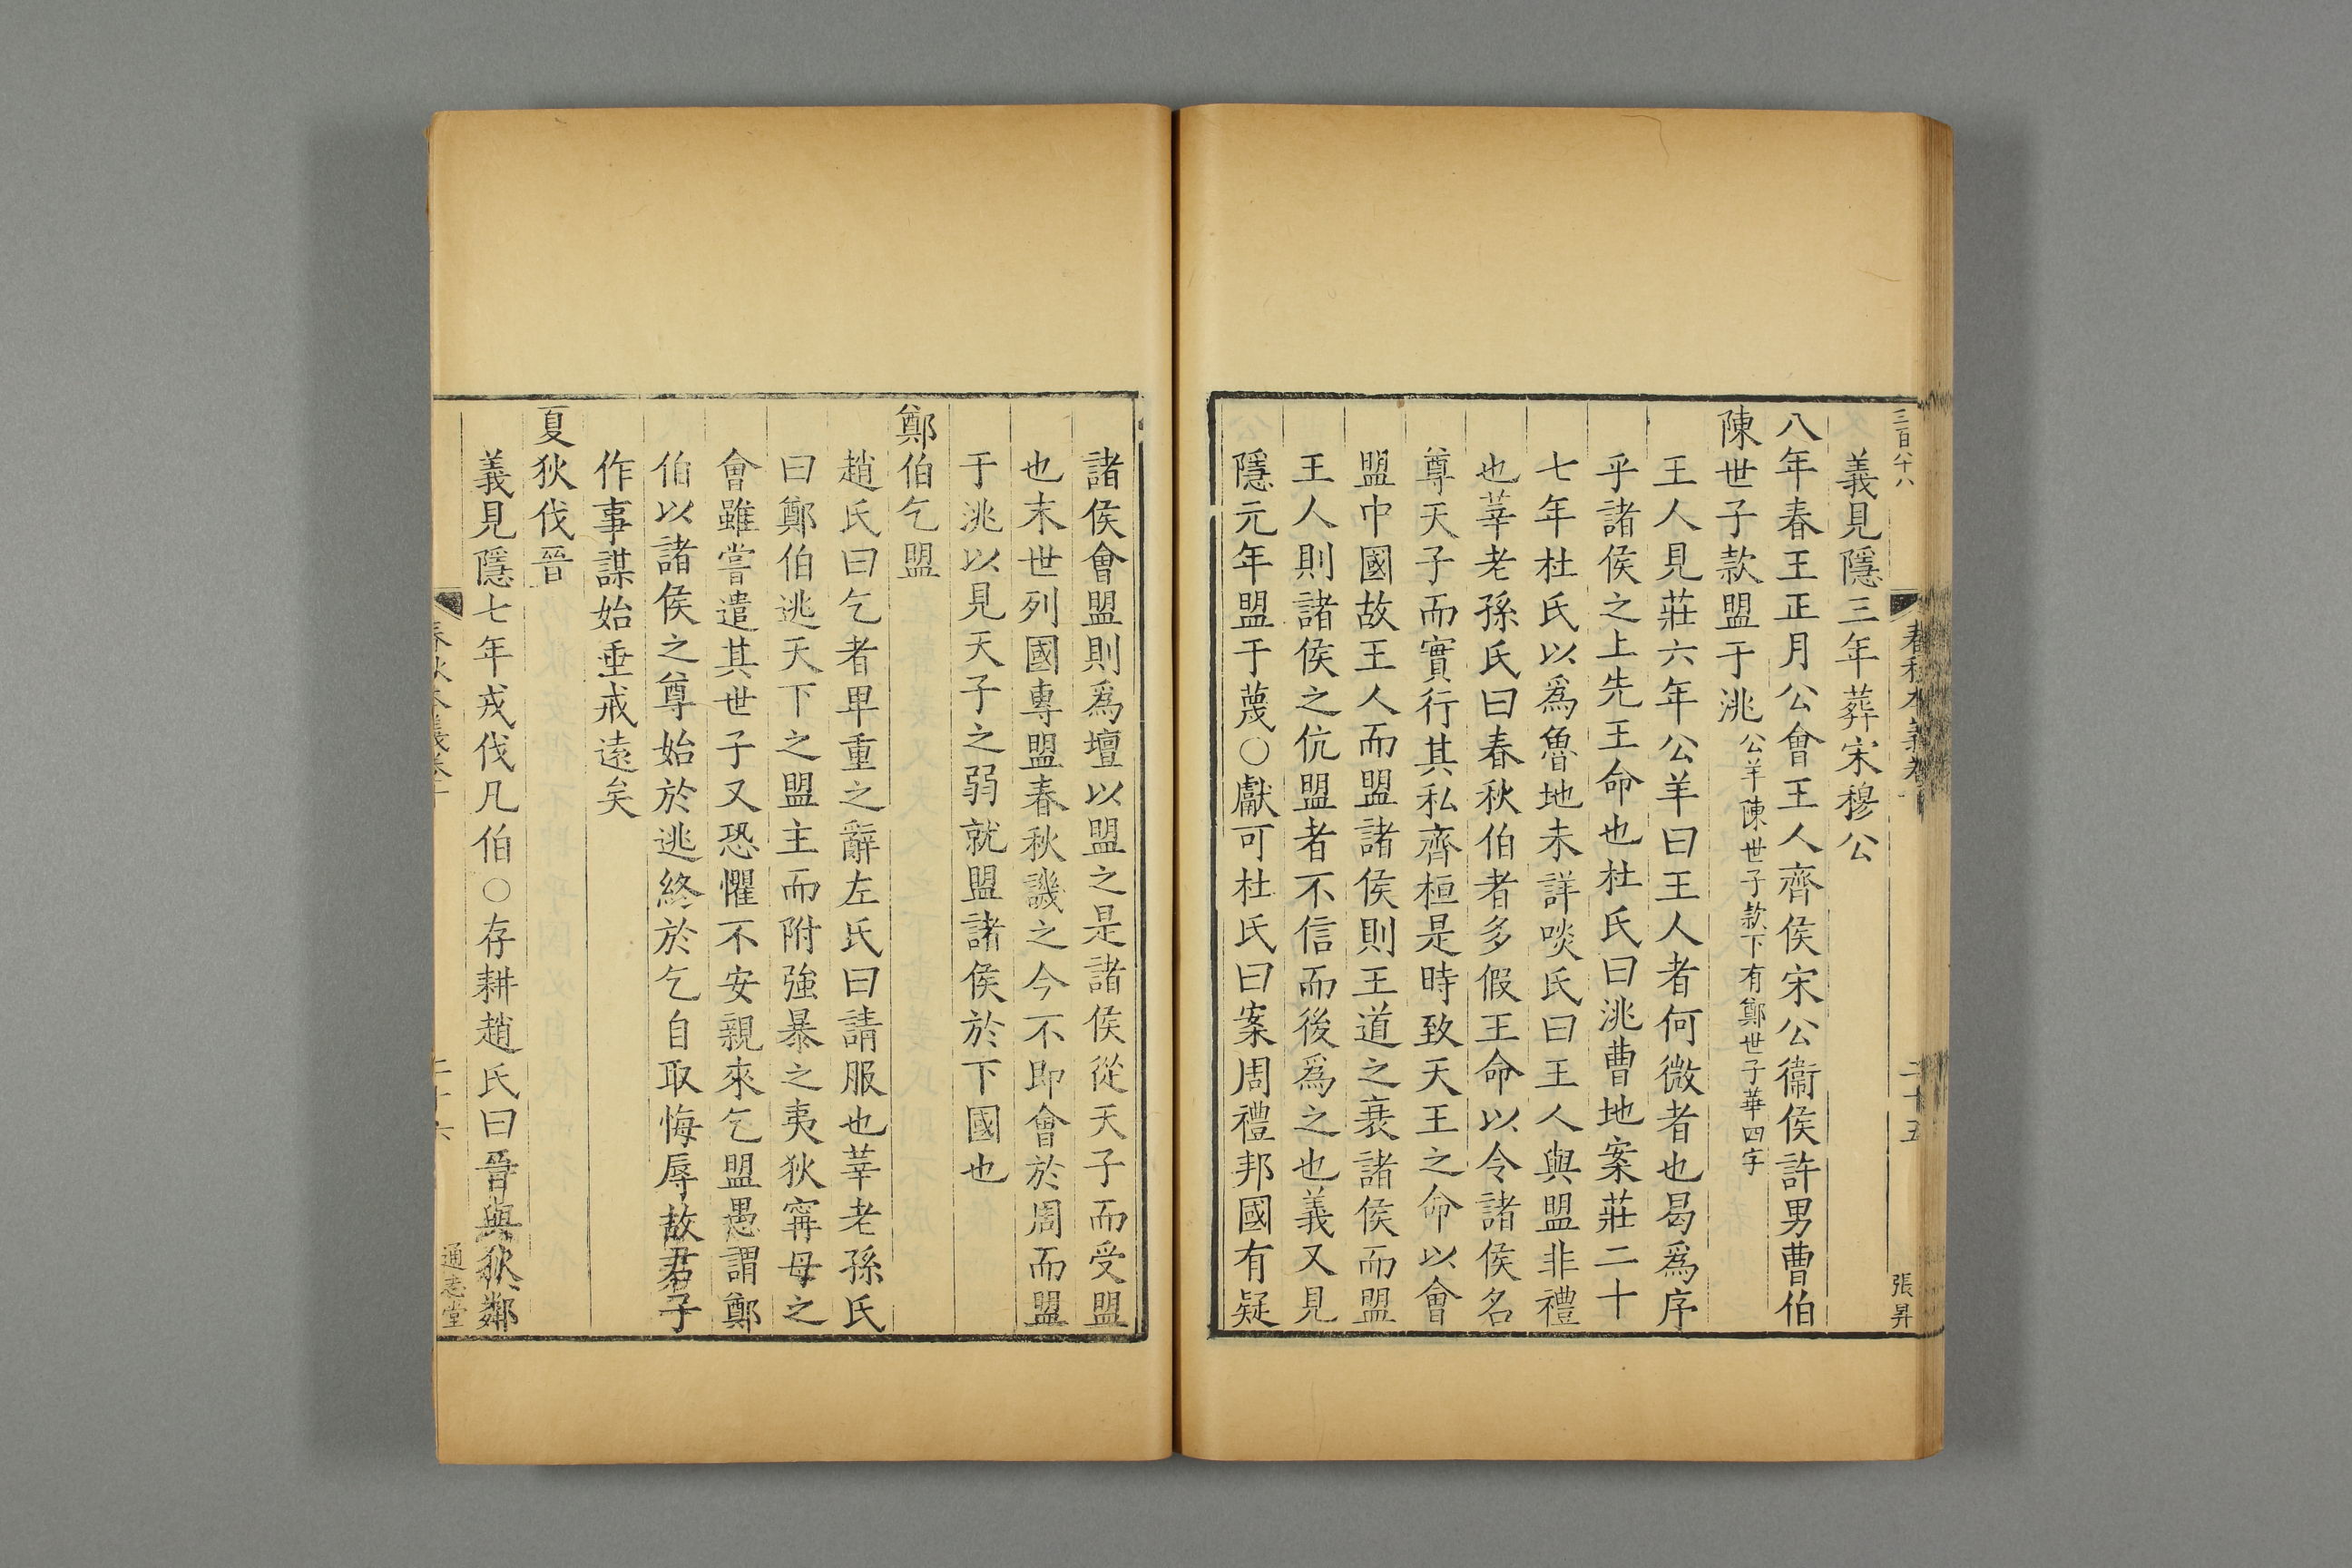 三百八十八
春秋本義卷
二十五
張昇
義見隱三年葬宋穆公
八年春王正月公會王人齊侯宋公衞侯許男曹伯
陳世子款盟于洮公羊陳世子款下有鄭世子華四字
王人見莊六年公羊曰王人者何微者也曷爲序
乎諸侯之上先王命也杜氏曰洮曹地案莊二十
七年杜氏以爲魯地未詳啖氏曰王人與盟非禮
也莘老孫氏曰春秋伯者多假王命以令諸侯名
尊天子而實行其私齊桓是時致天王之命以會
盟中國故王人而盟諸侯則王道之衰諸侯而盟
王人則諸侯之伉盟者不信而後爲之也義又見
隱元年盟于蔑○獻可杜氏曰案周禮邦國有疑
諸侯會盟則爲壇以盟之是諸侯從天子而受盟
也末世列國專盟春秋譏之今不即會於周而盟
于洮以見天子之弱就盟諸侯於下國也
鄭伯乞盟
趙氏曰乞者卑重之辭左氏曰請服也莘老孫氏
曰鄭伯逃天下之盟主而附強暴之夷狄甯母之
會雖嘗遣其世子又恐懼不安親來乞盟愚謂鄭
伯以諸侯之尊始於逃終於乞自取悔辱故君子
作事謀始垂戒遠矣
夏狄伐晉
義見隱七年戎伐凡伯○存耕趙氏曰晉與狄鄰
春秋本義卷十
二十六
通志堂